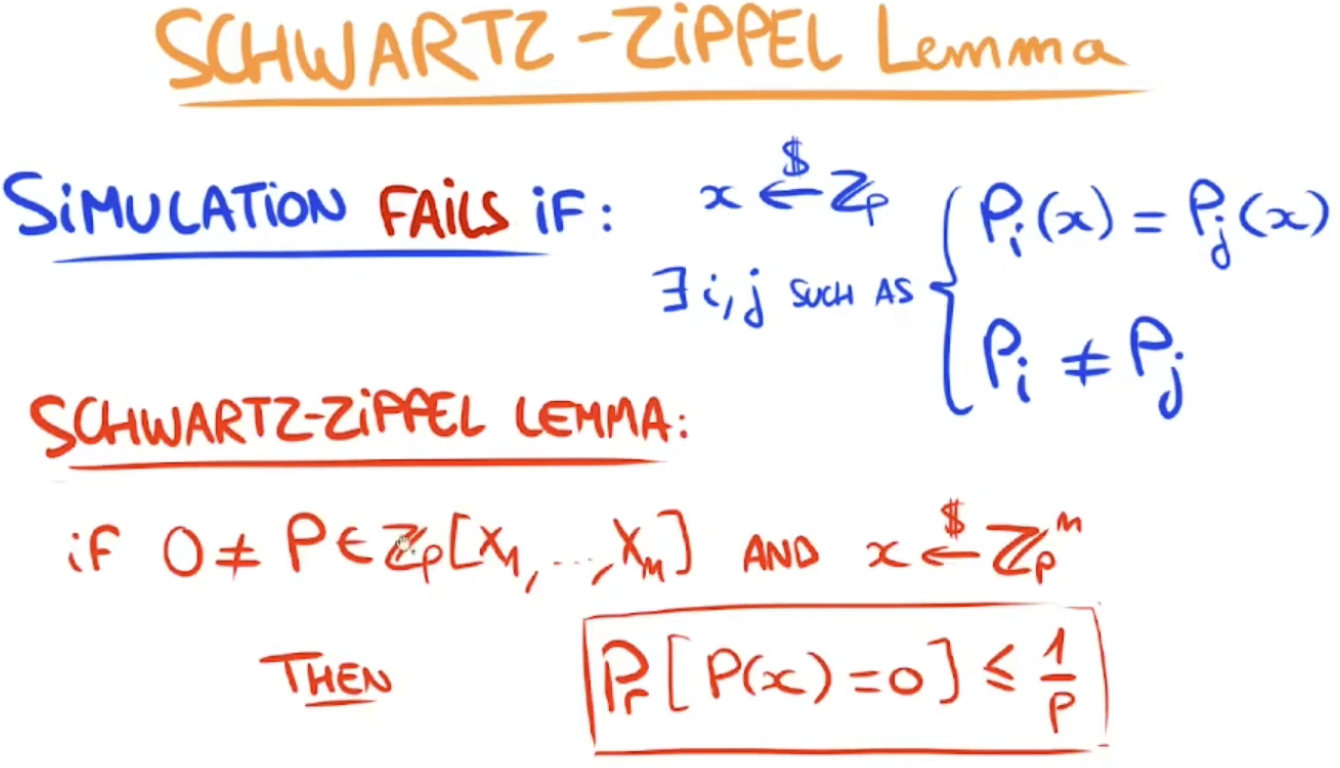 SCHWARTZ-ZiPPEL Lemma
SiMULATiON FAiLS iF:
x ←$ ℤp
∃ i,j SUCH AS { Pi(x) = Pj(x)
Pi ≠ Pj
SCHWARTZ-ZiPPEL LEMMA:
iF 0 ≠ P ∈ ℤp[X1, ..., Xm] AND x ←$ ℤp^m
THEN Pr[P(x) = 0] ≤ 1/p